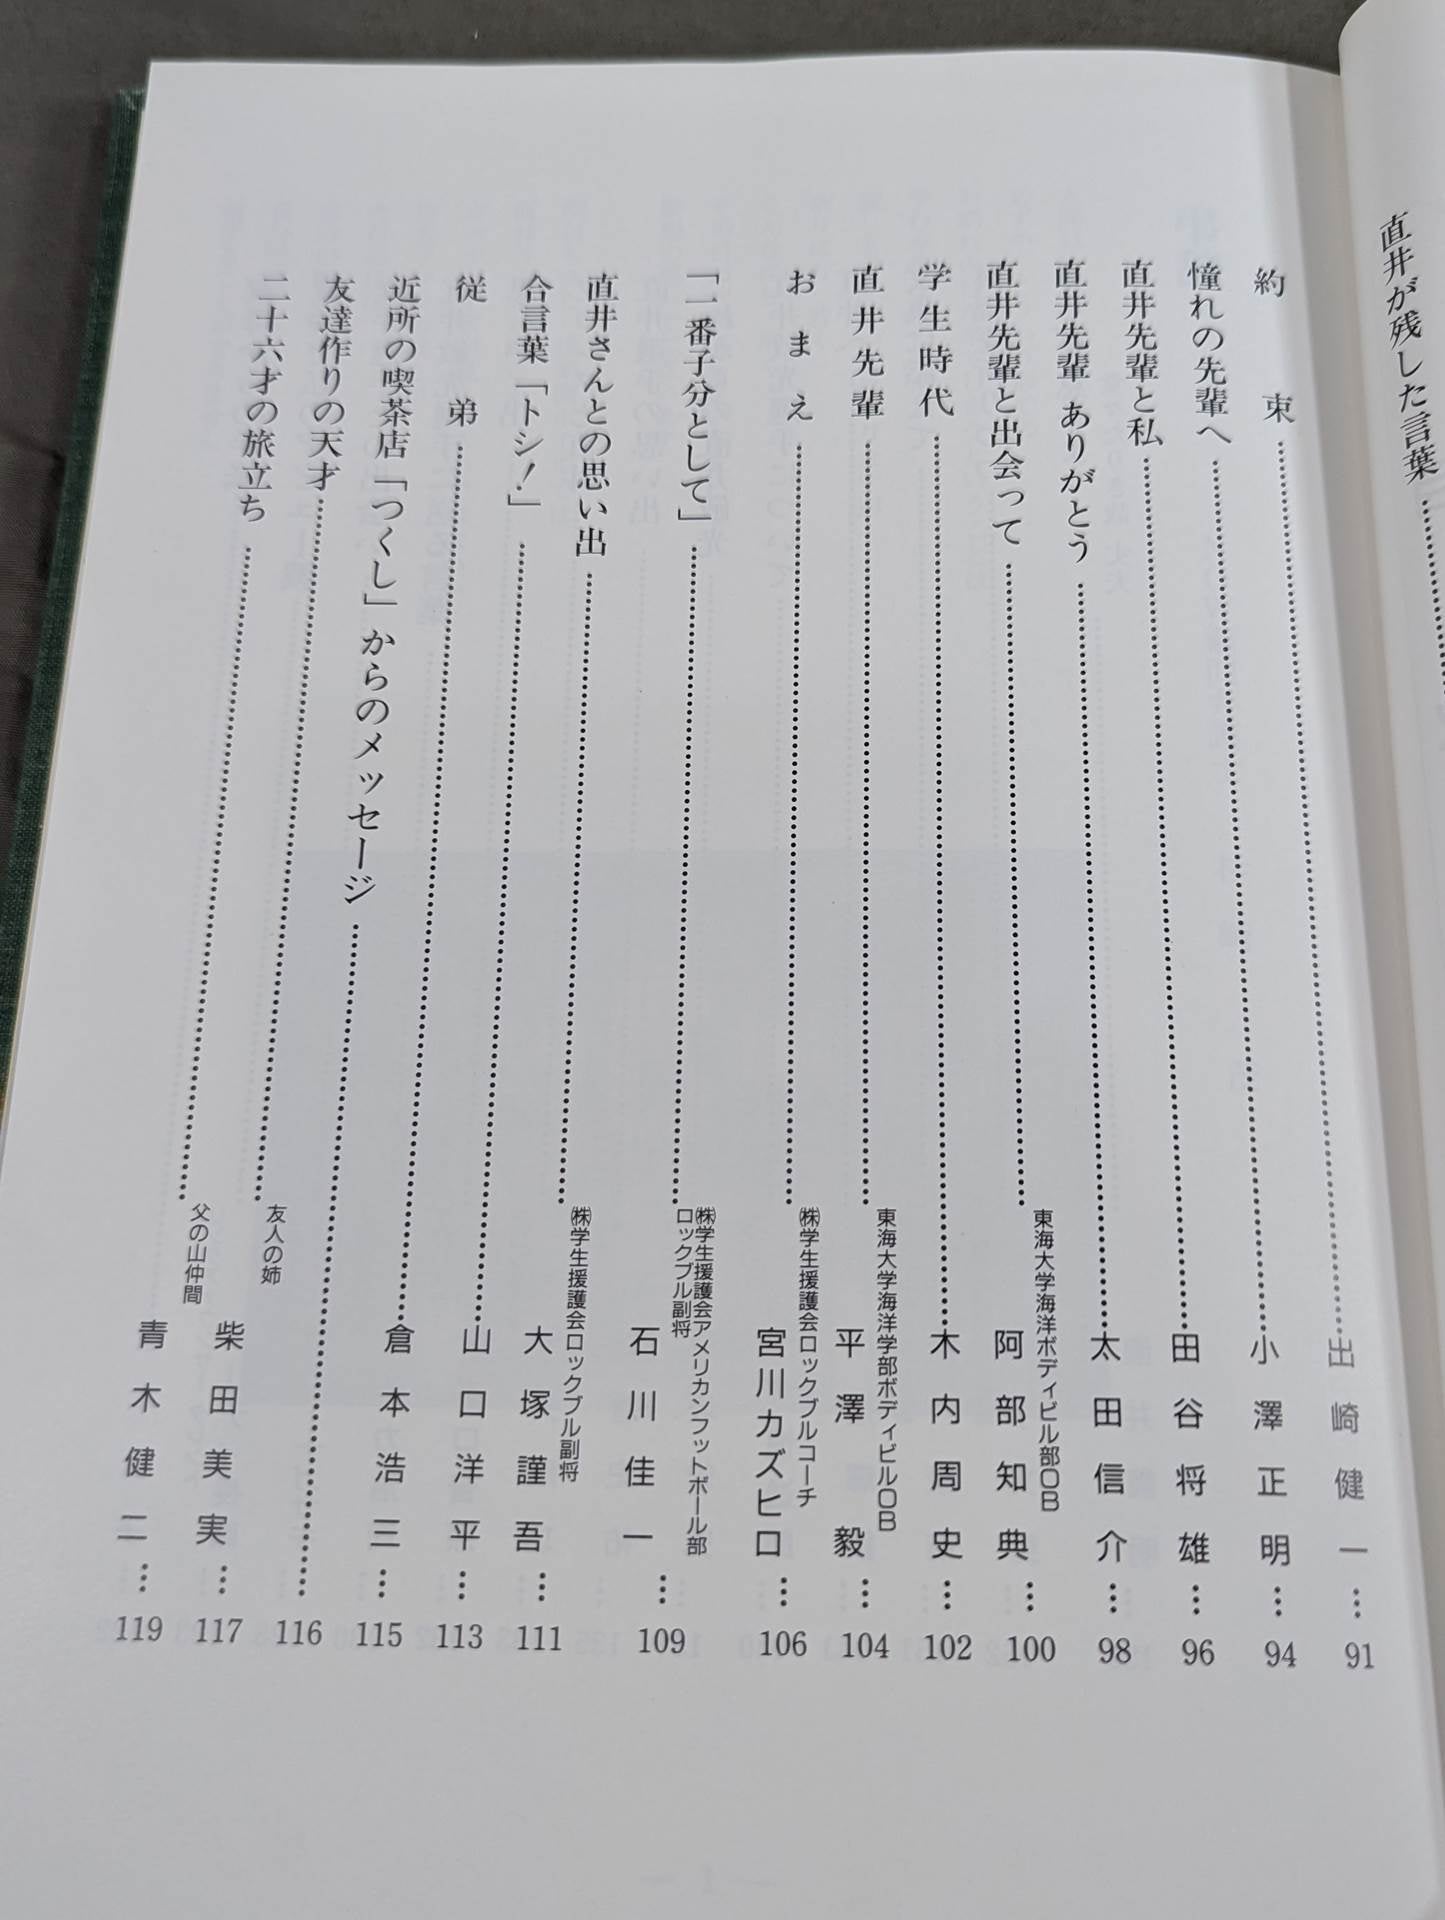 直井が残した言葉
約束 出崎健一 91
憧れの先輩へ 小澤正明 94
直井先輩と私 田谷将雄 96
直井先輩 ありがとう 太田信介 98
直井先輩と出会って 東海大学海洋ボディビル部OB 阿部知典 100
学生時代 木内周史 102
直井先輩 東海大学海洋学部ボディビルOB 平澤毅 104
おまえ ㈱学生援護会ロックブルコーチ 宮川カズヒロ 106
「一番子分として」 ㈱学生援護会アメリカンフットボール部
ロックブル副将 石川佳一 109
直井さんとの思い出 ㈱学生援護会ロックブル副将 大塚謹吾 111
合言葉「トシ！」 山口洋平 113
従弟 倉本浩三 115
近所の喫茶店「つくし」からのメッセージ 116
友達作りの天才 友人の姉 柴田美実 117
二十六才の旅立ち 父の山仲間 青木健二 119